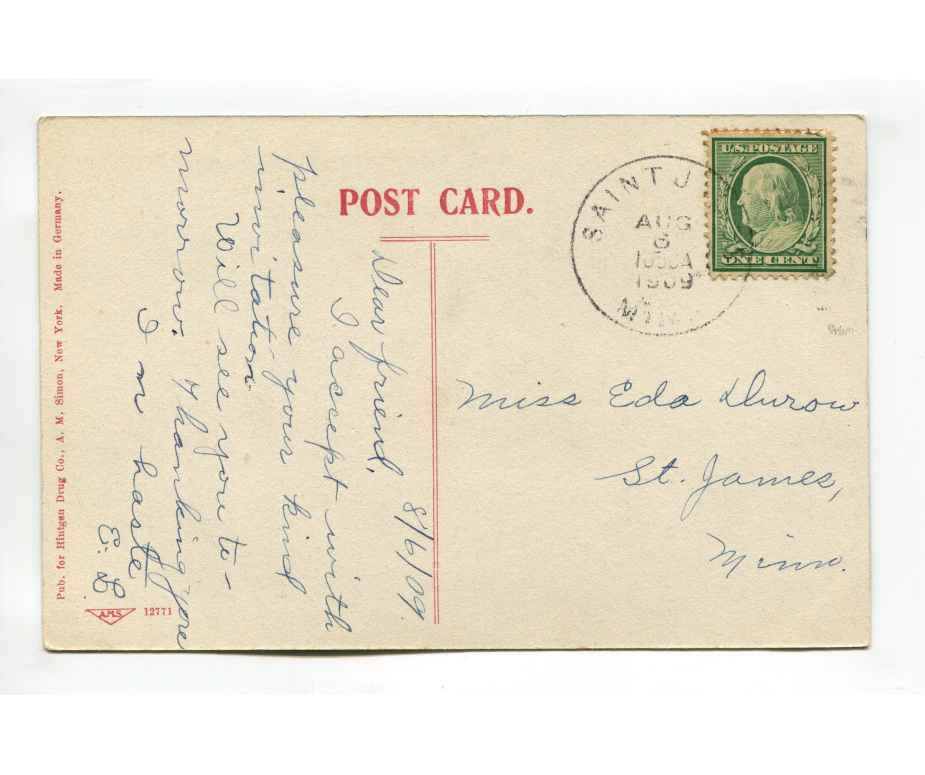 POST CARD.
U.S. POSTAGE
ONE CENT
SAINT J
AUG
6
1909
MINN
8/6/09.
Dear friend,
I accept with
pleasure your kind
invitation.
Will see you to-
morrow. Thanking you
I'm haste
E. L.
Miss Eda Durow
St. James,
Minn.
Pub. for Hintgen Drug Co., A. M. Simon, New York. Made in Germany.
A.M.S. 12771